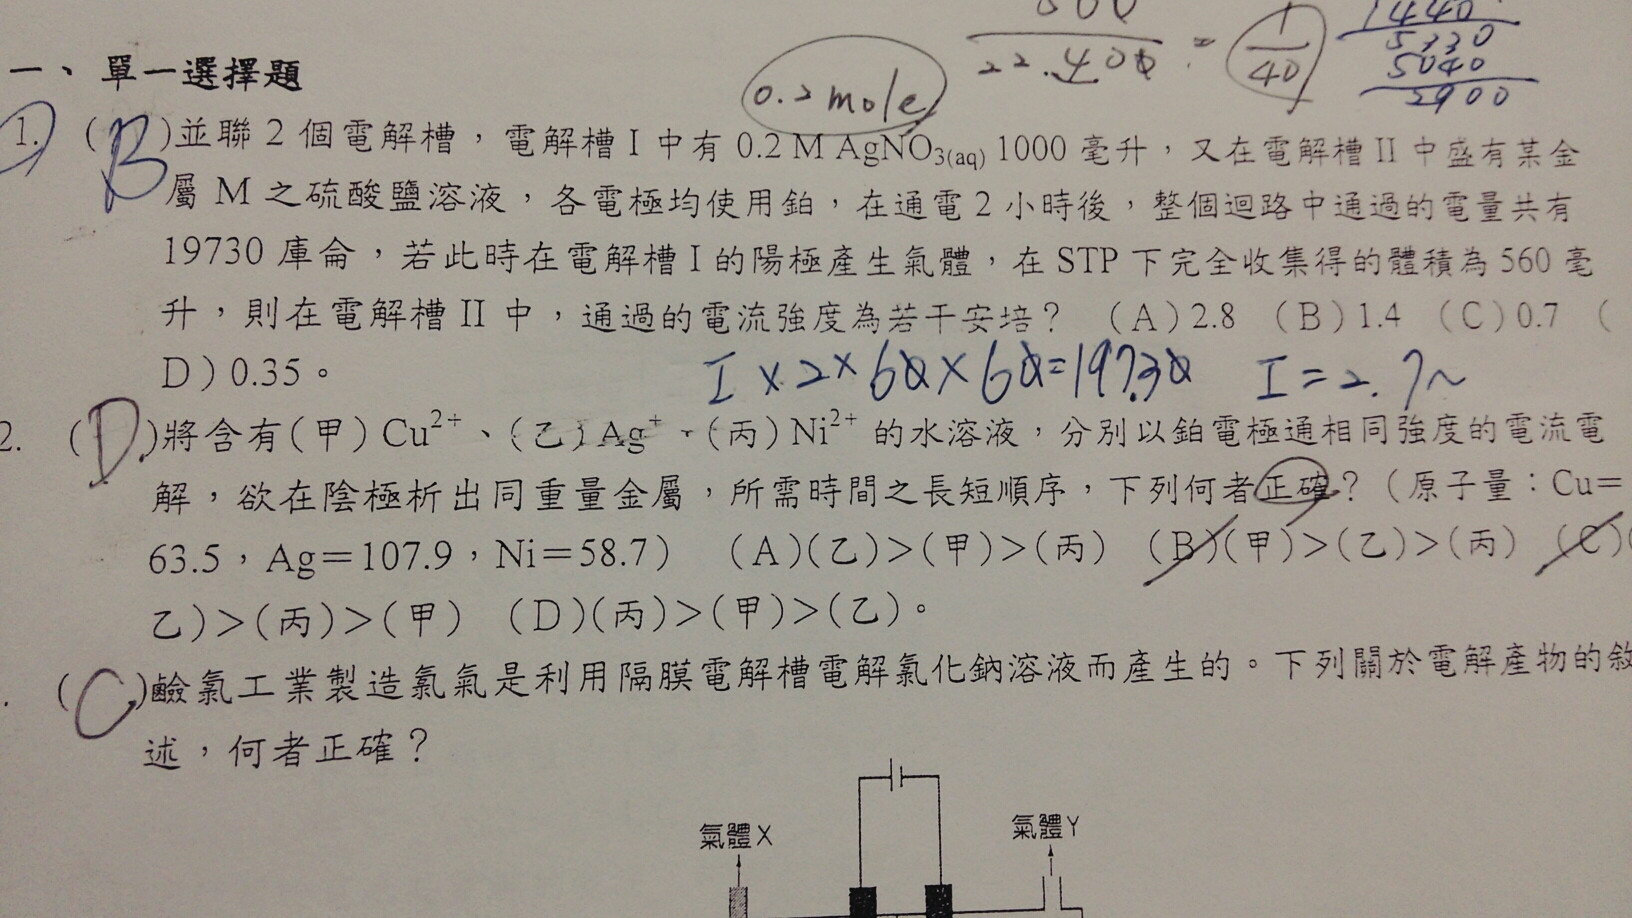 500
22.400 = 1/40
1440
5330
5040
2900
一、單一選擇題
0.2 mole
1. (B)並聯2個電解槽，電解槽I中有0.2 M AgNO3(aq) 1000毫升，又在電解槽II中盛有某金
屬M之硫酸鹽溶液，各電極均使用鉑，在通電2小時後，整個迴路中通過的電量共有
19730庫侖，若此時在電解槽I的陽極產生氣體，在STP下完全收集得的體積為560毫
升，則在電解槽II中，通過的電流強度為若干安培？ (A)2.8 (B)1.4 (C)0.7 (
D)0.35。
I×2×60×60=19730 I=2.7~
2. (D)將含有(甲)Cu2+、(乙)Ag+、(丙)Ni2+的水溶液，分別以鉑電極通相同強度的電流電
解，欲在陰極析出同重量金屬，所需時間之長短順序，下列何者正確？(原子量：Cu=
63.5，Ag=107.9，Ni=58.7) (A)(乙)>(甲)>(丙) (B)(甲)>(乙)>(丙) (C)(
乙)>(丙)>(甲) (D)(丙)>(甲)>(乙)。
. (C)鹼氯工業製造氯氣是利用隔膜電解槽電解氯化鈉溶液而產生的。下列關於電解產物的敘
述，何者正確？
氣體X
氣體Y